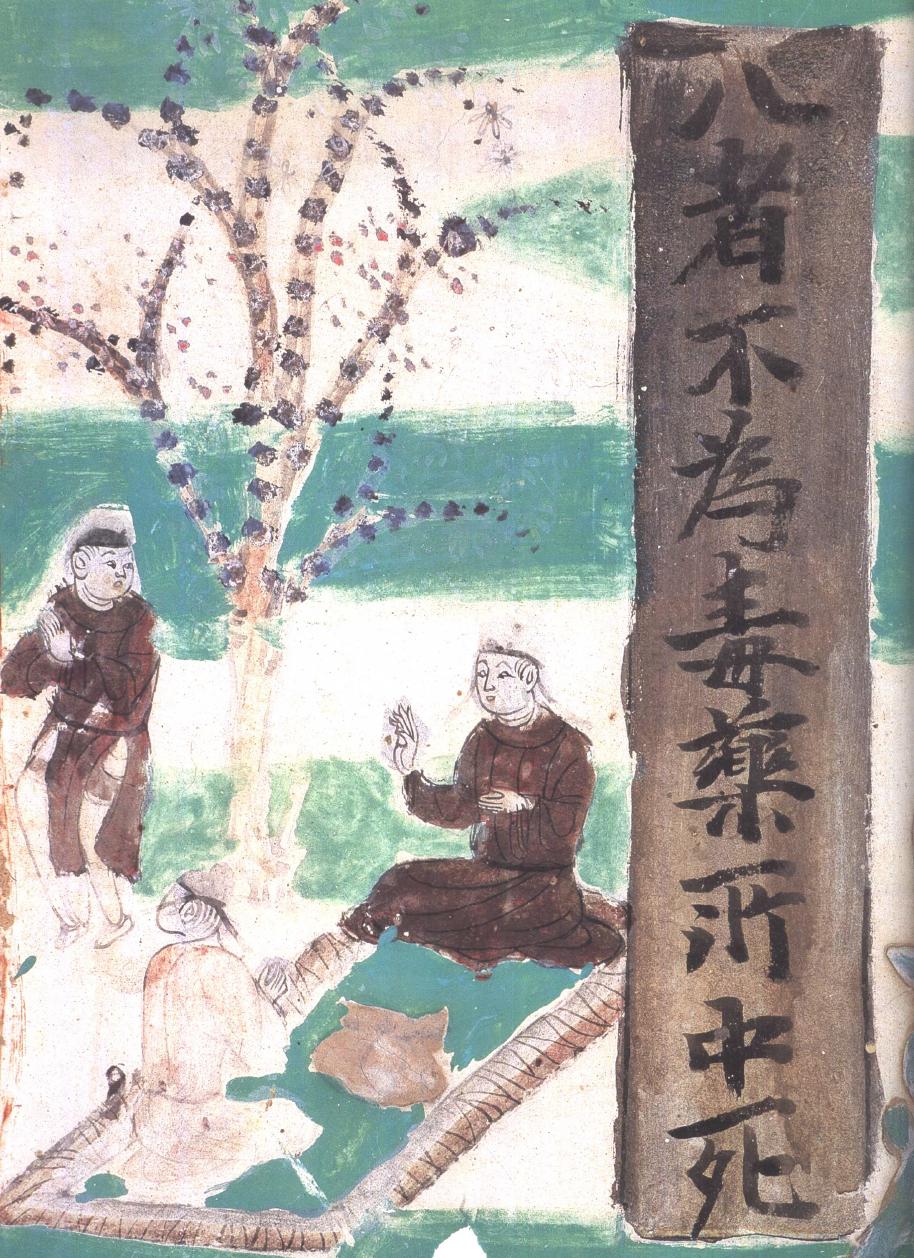 八者不為毒藥所中死